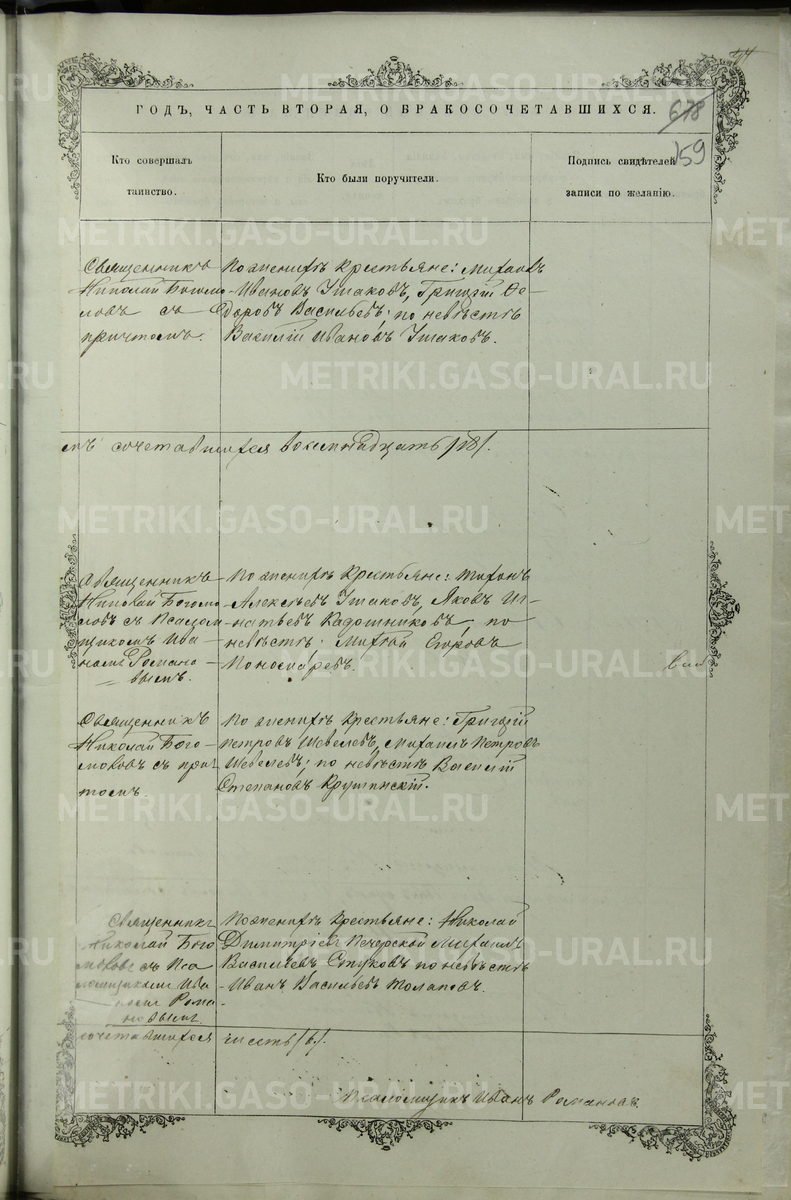 678
159
ГОДЪ, ЧАСТЬ ВТОРАЯ, О БРАКОСОЧЕТАВШИХСЯ.
Кто совершалъ
таинство.
Кто были поручители.
Подпись свидѣтелей
записи по желанію.
Священникъ
Николай Богомо-
ловъ съ
причтомъ.
По женихѣ крестьяне: Михаилъ
Ивановъ Ушаковъ, Григорій Ѳе-
доровъ Васильевъ; по невѣстѣ
Василій Ивановъ Ушаковъ.
сочетавшихся восемнадцать /18/.
Священникъ
Николай Богомо-
ловъ съ Псалом-
щикомъ Ива-
номъ Романо-
вымъ.
По женихѣ крестьяне: Тихонъ
Алексѣевъ Ушаковъ, Яковъ Иг-
натьевъ Кадошниковъ, по
невѣстѣ: Михаилъ Егоровъ
Пономаревъ.
Священникъ
Николай Бого-
моловъ съ при-
томъ.
По женихѣ крестьяне: Григорій
Петровъ Шевелевъ, Михаилъ Петровъ
Шевелевъ; по невѣстѣ Василій
Степановъ Крушинскій.
Священникъ
Николай Бого
моловъ съ Пса
ломщикомъ Ива
номъ Рома
новымъ.
По женихѣ крестьяне: Николай
Димитріевъ Печорской Михаилъ
Васильевъ Стуковъ по невѣстѣ
Иванъ Васильевъ
сочетавшихся шесть /6/.
Псаломщикъ Иванъ Романовъ.
METRIKI.GASO-URAL.RU